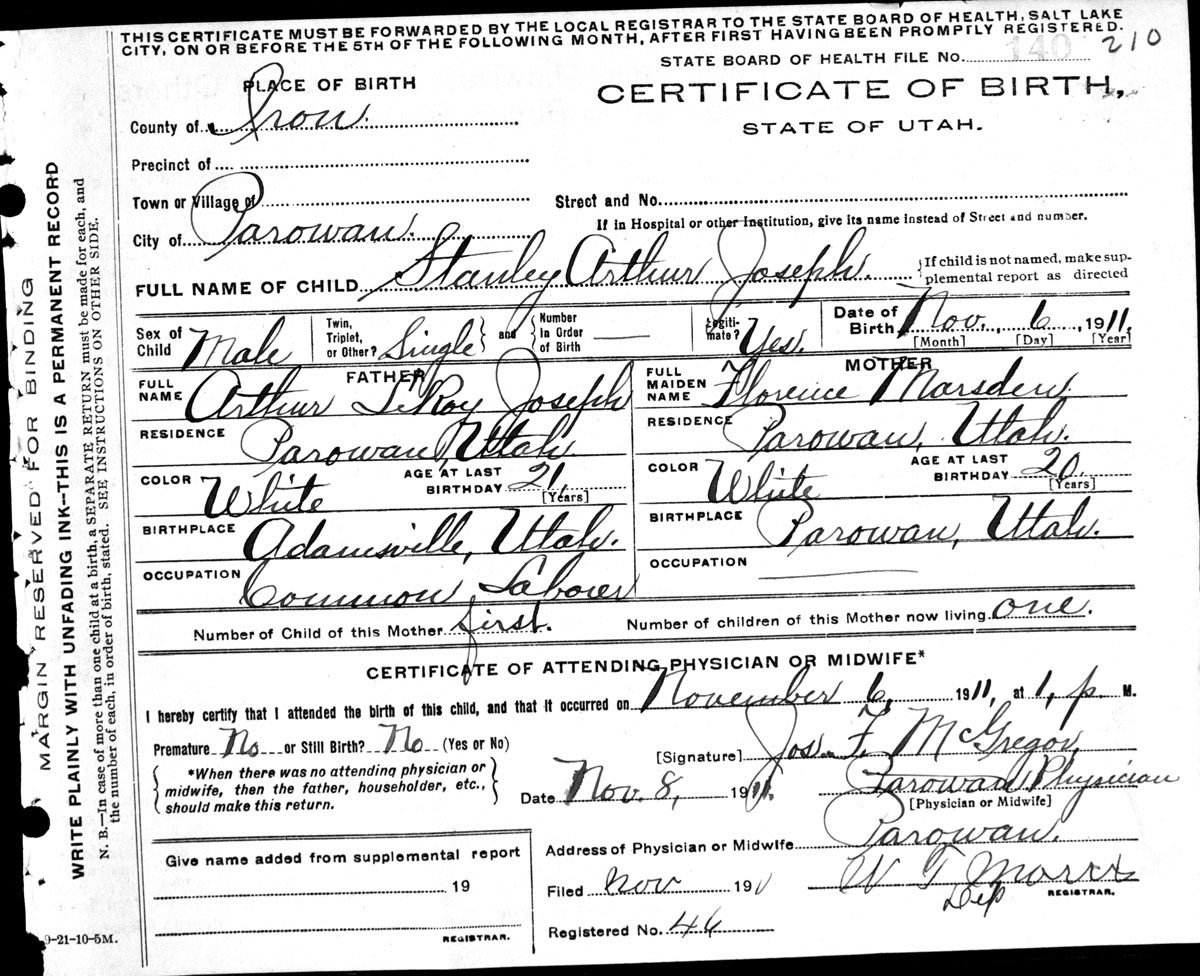 THIS CERTIFICATE MUST BE FORWARDED BY THE LOCAL REGISTRAR TO THE STATE BOARD OF HEALTH, SALT LAKE
CITY, ON OR BEFORE THE 5TH OF THE FOLLOWING MONTH, AFTER FIRST HAVING BEEN PROMPTLY REGISTERED.
STATE BOARD OF HEALTH FILE No. 140 210
PLACE OF BIRTH
CERTIFICATE OF BIRTH,
STATE OF UTAH.
County of Iron.
Precinct of
Town or Village of
Street and No.
If in Hospital or other Institution, give its name instead of Street and number.
City of Parowan.
FULL NAME OF CHILD Stanley Arthur Joseph. {If child is not named, make sup-
plemental report as directed
Sex of Child Male
Twin, Triplet, or Other? Single } and { Number in Order of Birth —
Legiti-mate? Yes.
Date of Birth Nov. 6, 1911.
[Month] [Day] [Year]
FATHER
FULL NAME Arthur LeRoy Joseph
RESIDENCE Parowan, Utah.
COLOR White AGE AT LAST BIRTHDAY 21 [Years]
BIRTHPLACE Adamsville, Utah.
OCCUPATION Common Laborer
MOTHER
FULL MAIDEN NAME Florence Marsden.
RESIDENCE Parowan, Utah.
COLOR White AGE AT LAST BIRTHDAY 20 [Years]
BIRTHPLACE Parowan, Utah.
OCCUPATION —
Number of Child of this Mother first. Number of children of this Mother now living one.
CERTIFICATE OF ATTENDING PHYSICIAN OR MIDWIFE*
I hereby certify that I attended the birth of this child, and that it occurred on November 6, 1911, at 1, p M.
Premature No or Still Birth? No (Yes or No)
[Signature] Jos. F. McGregor,
{ *When there was no attending physician or
midwife, then the father, householder, etc.,
should make this return. }
Date Nov. 8, 1911. Parowan Physician
[Physician or Midwife]
Address of Physician or Midwife Parowan.
Give name added from supplemental report
19
REGISTRAR.
Filed Nov 191 W T
Dep REGISTRAR.
Registered No. 46
9-21-10-5M.
MARGIN RESERVED FOR BINDING
WRITE PLAINLY WITH UNFADING INK—THIS IS A PERMANENT RECORD
N. B.—In case of more than one child at a birth, a SEPARATE RETURN must be made for each, and
the number of each, in order of birth, stated. SEE INSTRUCTIONS ON OTHER SIDE.